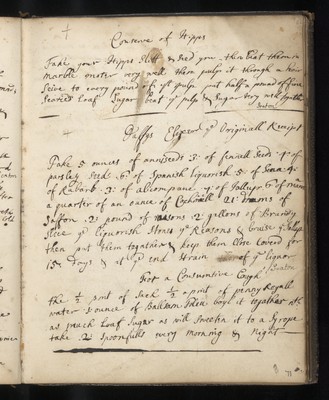 Conserve of Hipps
Take your Hipps slitt & seed you then beat them in
Marble morter very well then pulpe it through a hair
Seive to every pound of yt pulpe put half a pound of fine
Searced Loaf Sugar beat ye pulp & Sugar very well together
Elixer ye Originall Receipt
Take 5 ounces of anniseeds 3 of fenell Seeds 4 of
parsley Seeds 6 of Spanish liquorish 5 of Senna 4
of Rubarb 3 of allecompane 7 of Jallup 6 of manna
a quarter of an ounce of Cocheneill 21 drams of
Saffron 2 pound of reasons 2 gallons of Brandy
slice ye liquorish stone ye Reasons & bruise ye Jallup
then put them together & keep them close covered for
15 days & at ye end strain of ye liquor
For a Consumtive Cough
the 1/2 pint of Sack 1/2 a pint of penny Royall
water & ounce of Balsom then boyl it together wth
as much Loaf Sugar as will sweeten it to a Syrope
take 2 spoonfulls every morning & night
71